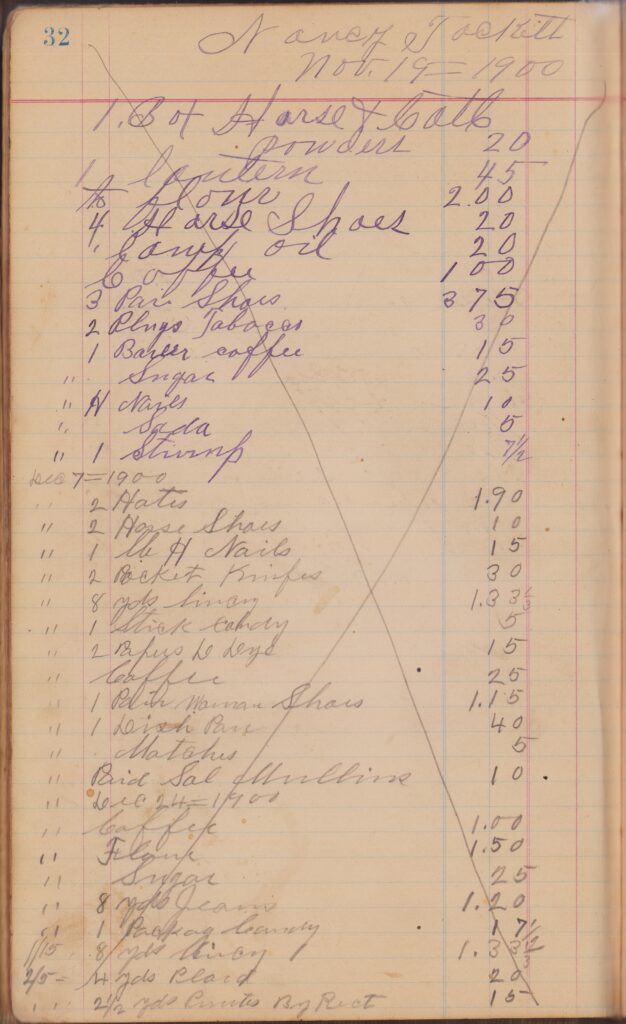 32
Nancy Tackett
Nov. 19=1900
1. Box Horse & Catl
powders 20
1 lantern 45
flour 2.00
4 Horse Shoes 20
" Cany oil 20
Coffee 1 00
3 Pair Shoes 3 75
2 Plugs Tobacco 30
1 coffee 15
" Sugar 25
" H Nails 10
" Soda 5
" 1 7 1/2
Dec 7=1900
" 2 Hats 1.90
" 2 Horse Shoes 10
" 1 lb H Nails 15
" 2 Pocket Knifes 30
" 8 yds lincy 1.33 1/3
" 1 Stick Candy 5
" 2 D Dye 15
" Coffee 25
" 1 Pair Woman Shoes 1.15
" 1 Dish Pan 40
" Matches 5
" Paid Sal Mullins 10
" Dec 24=1900
" Coffee 1.00
" Flour 1.50
" Sugar 25
" 8 yds Jeans 1.20
" 1 Packag Candy 17 1/2
1/15 8 yds lincy 1.33 1/3
2/5 = 4 yds Plaid 20
" " 2 1/2 yds By Rect 15